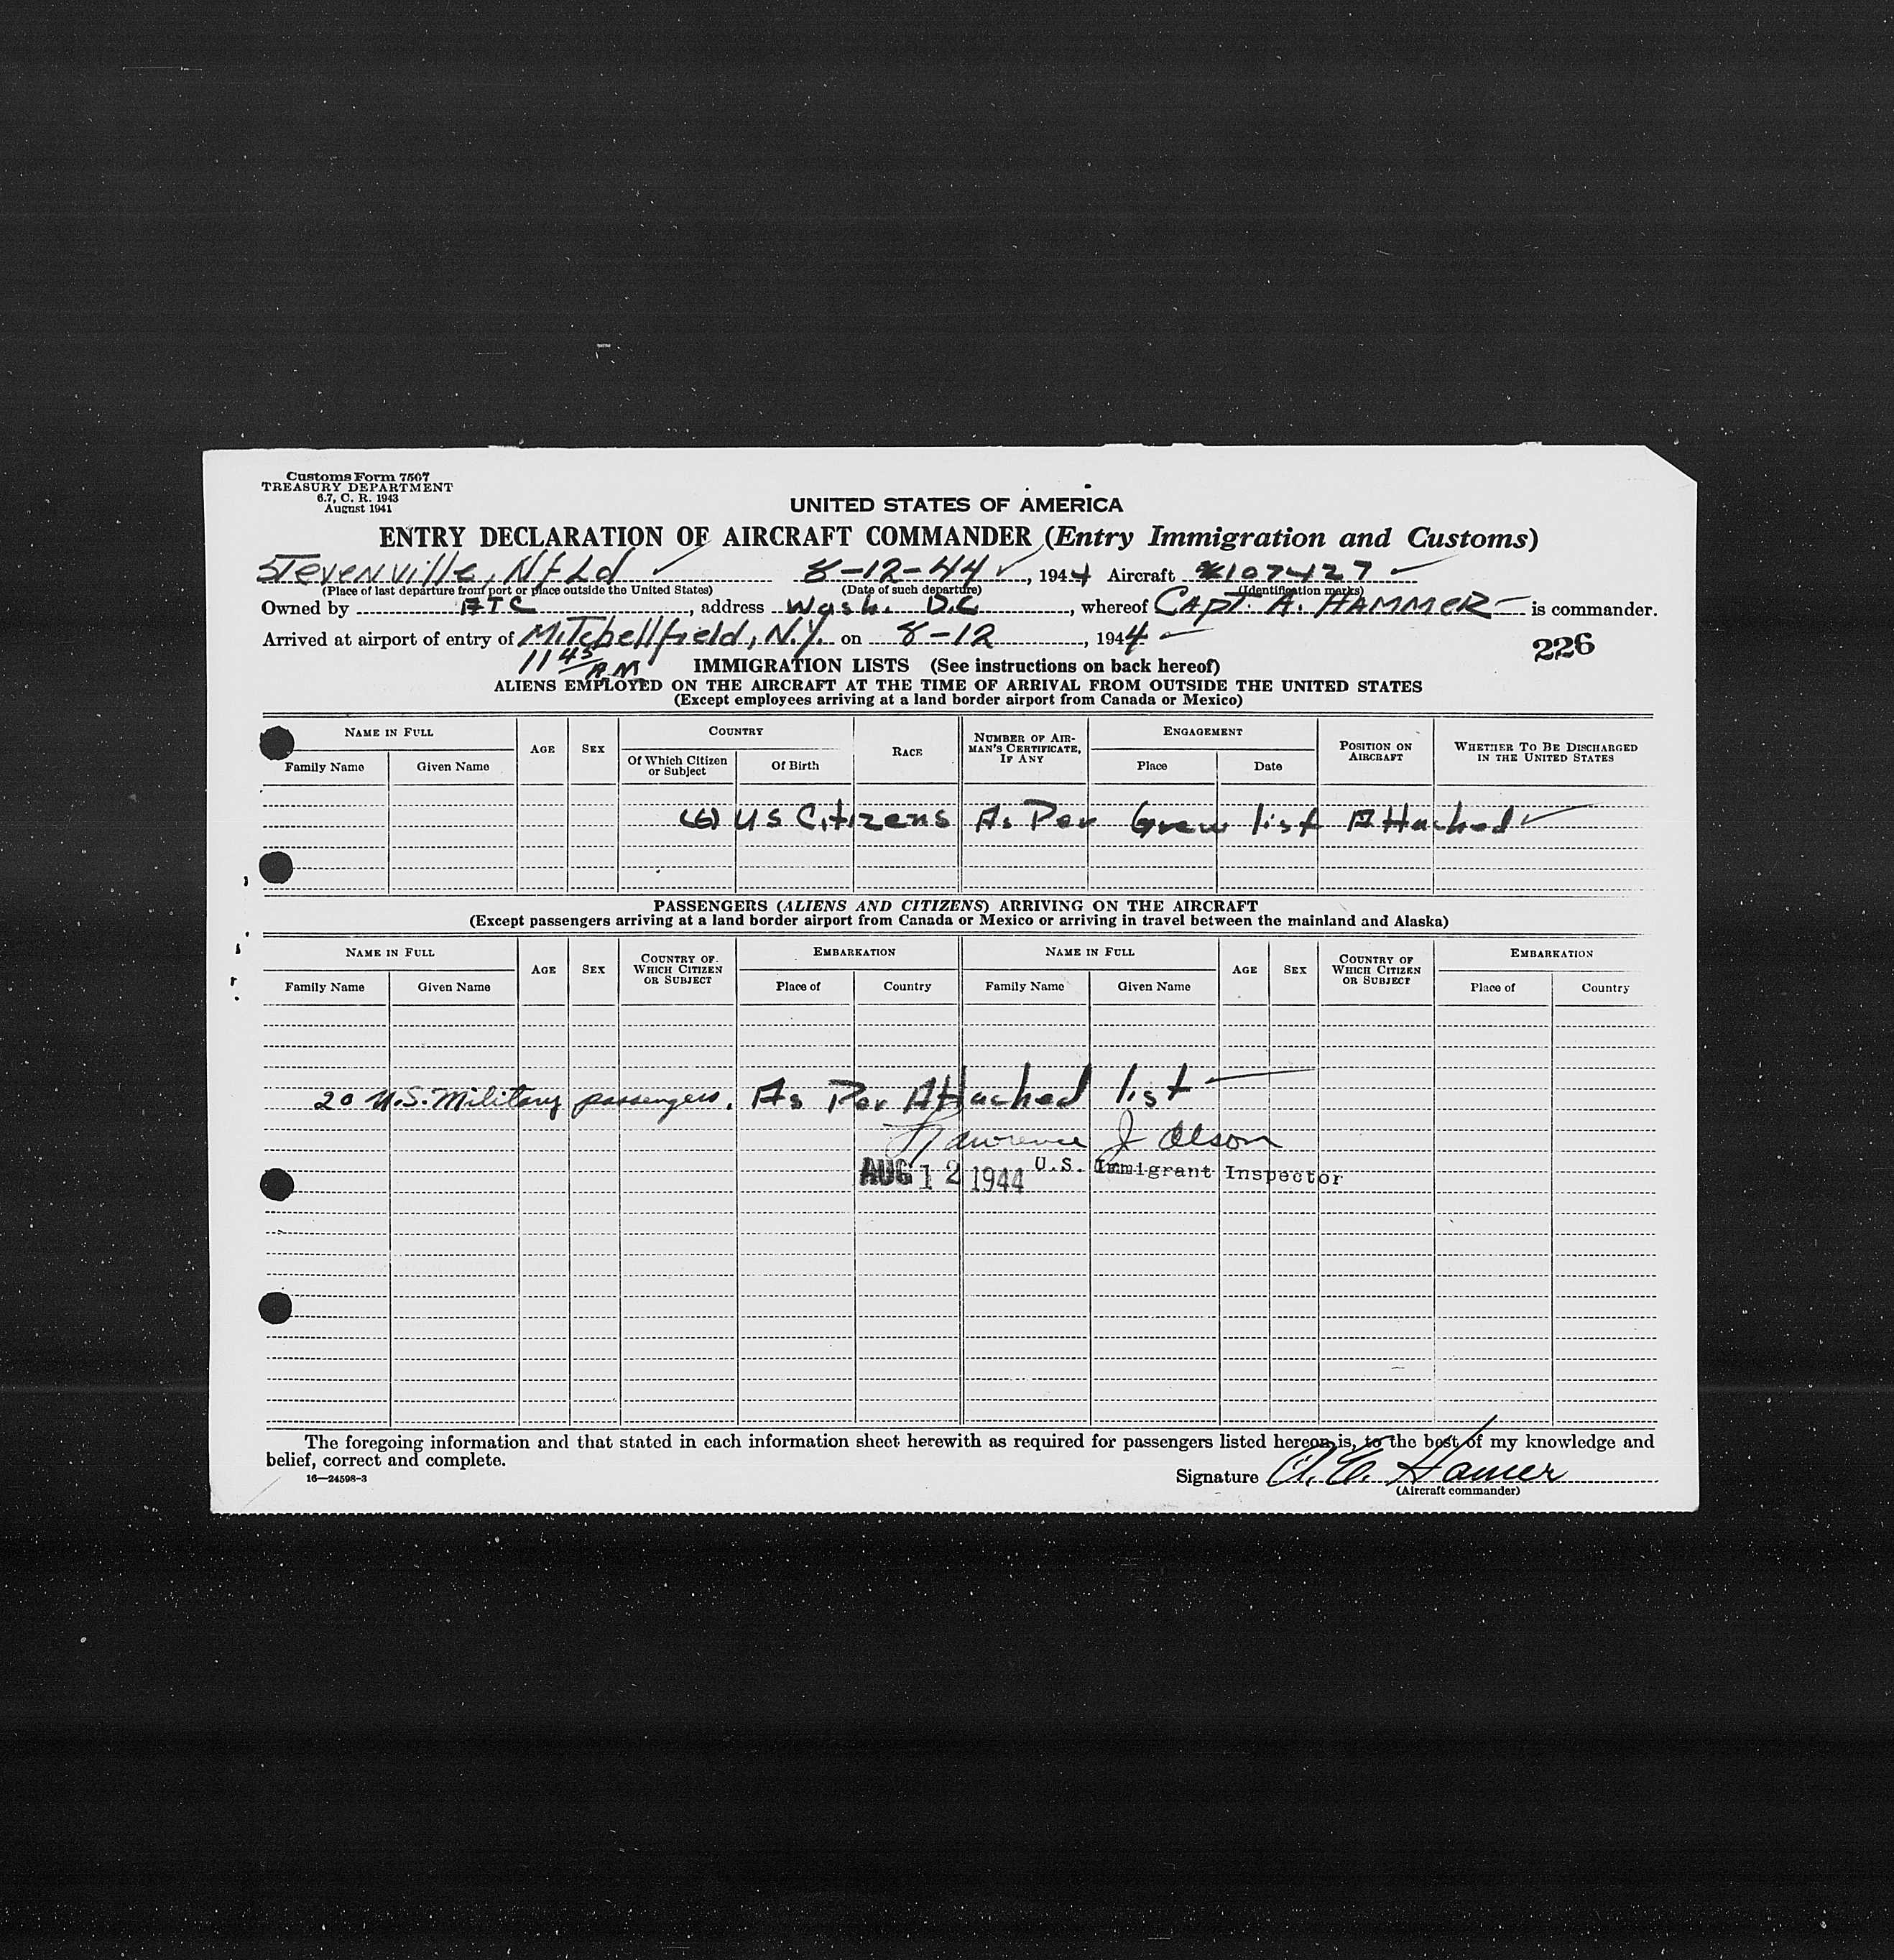 Customs Form 7507
TREASURY DEPARTMENT
6.7, C. R. 1943
August 1941
UNITED STATES OF AMERICA
ENTRY DECLARATION OF AIRCRAFT COMMANDER (Entry Immigration and Customs)
Stevenville, Nfld 8-12-44, 1944 Aircraft 107427
(Place of last departure from port or place outside the United States) (Date of such departure) (Identification marks)
Owned by ATC, address Wash. D.C, whereof CAPT. A. HAMMER is commander.
Arrived at airport of entry of Mitchellfield, N.Y. on 8-12, 1944
226
11 45 A.M
IMMIGRATION LISTS (See instructions on back hereof)
ALIENS EMPLOYED ON THE AIRCRAFT AT THE TIME OF ARRIVAL FROM OUTSIDE THE UNITED STATES
(Except employees arriving at a land border airport from Canada or Mexico)
NAME IN FULL AGE SEX COUNTRY RACE NUMBER OF AIRMAN'S CERTIFICATE, IF ANY ENGAGEMENT POSITION ON AIRCRAFT WHETHER TO BE DISCHARGED IN THE UNITED STATES
Family Name Given Name Of Which Citizen or Subject Of Birth Place Date
(6) US Citizens As Per Crew list Attached
PASSENGERS (ALIENS AND CITIZENS) ARRIVING ON THE AIRCRAFT
(Except passengers arriving at a land border airport from Canada or Mexico or arriving in travel between the mainland and Alaska)
NAME IN FULL AGE SEX COUNTRY OF WHICH CITIZEN OR SUBJECT EMBARKATION NAME IN FULL AGE SEX COUNTRY OF WHICH CITIZEN OR SUBJECT EMBARKATION
Family Name Given Name Place of Country Family Name Given Name Place of Country
20 U.S. Military passengers. As Per Attached list
Lawrence J Olson
AUG 12 1944 U.S. Immigrant Inspector
The foregoing information and that stated in each information sheet herewith as required for passengers listed hereon is, to the best of my knowledge and
belief, correct and complete.
16—24598-3
Signature A. E. Hamer
(Aircraft commander)